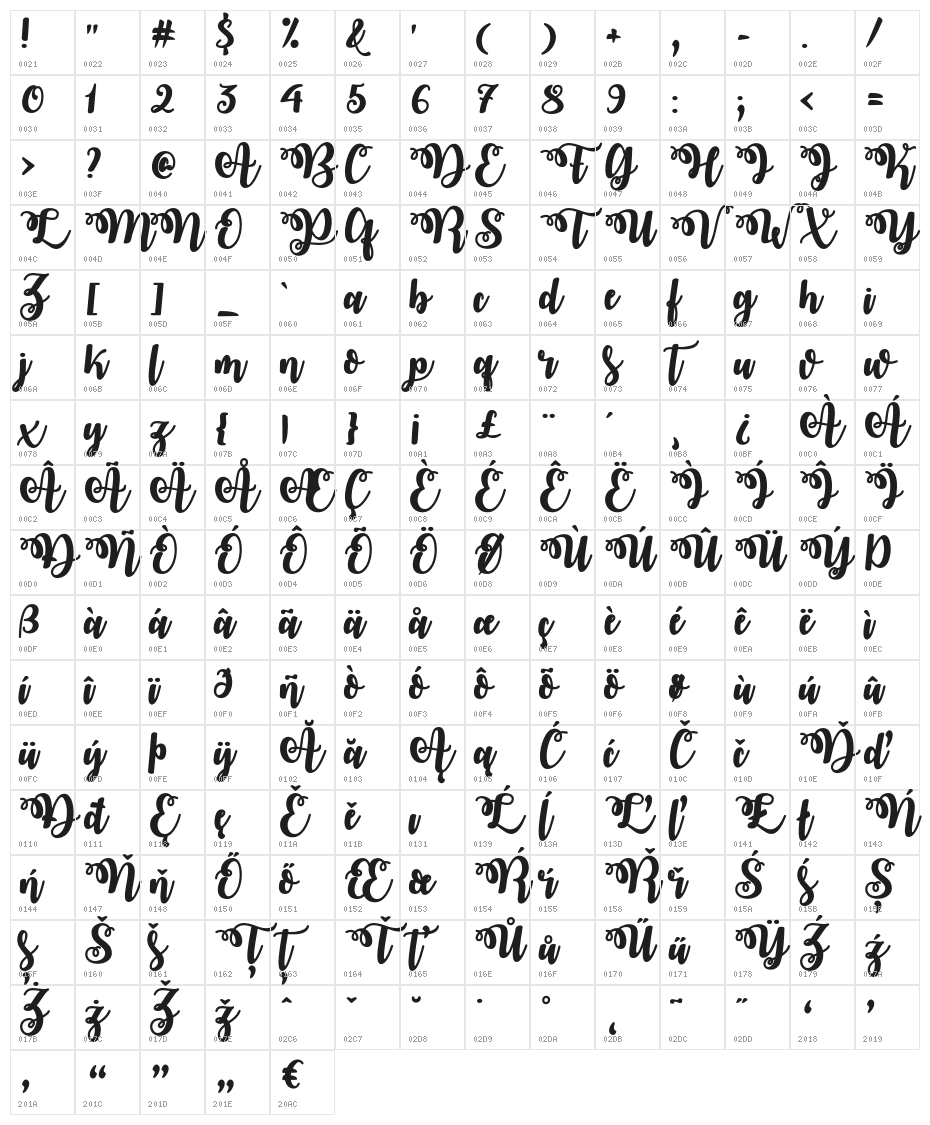 ! " # $ % & ' ( ) + , - . /
0021 0022 0023 0024 0025 0026 0027 0028 0029 002B 002C 002D 002E 002F
0 1 2 3 4 5 6 7 8 9 : ; < =
0030 0031 0032 0033 0034 0035 0036 0037 0038 0039 003A 003B 003C 003D
> ? @ A B C D E F G H I J K
003E 003F 0040 0041 0042 0043 0044 0045 0046 0047 0048 0049 004A 004B
L M N O P Q R S T U V W X Y
004C 004D 004E 004F 0050 0051 0052 0053 0054 0055 0056 0057 0058 0059
Z [ ] _ ` a b c d e f g h i
005A 005B 005D 005F 0060 0061 0062 0063 0064 0065 0066 0067 0068 0069
j k l m n o p q r s t u v w
006A 006B 006C 006D 006E 006F 0070 0071 0072 0073 0074 0075 0076 0077
x y z { | } ¡ £ ¨ ´ ¸ ¿ À Á
0078 0079 007A 007B 007C 007D 00A1 00A3 00A8 00B4 00B8 00BF 00C0 00C1
Â Ã Ä Å Æ Ç È É Ê Ë Ì Í Î Ï
00C2 00C3 00C4 00C5 00C6 00C7 00C8 00C9 00CA 00CB 00CC 00CD 00CE 00CF
Ð Ñ Ò Ó Ô Õ Ö Ø Ù Ú Û Ü Ý Þ
00D0 00D1 00D2 00D3 00D4 00D5 00D6 00D8 00D9 00DA 00DB 00DC 00DD 00DE
ß à á â ã ä å æ ç è é ê ë ì
00DF 00E0 00E1 00E2 00E3 00E4 00E5 00E6 00E7 00E8 00E9 00EA 00EB 00EC
í î ï ð ñ ò ó ô õ ö ø ù ú û
00ED 00EE 00EF 00F0 00F1 00F2 00F3 00F4 00F5 00F6 00F8 00F9 00FA 00FB
ü ý þ ÿ Ă ă Ą ą Ć ć Č č Ď ď
00FC 00FD 00FE 00FF 0102 0103 0104 0105 0106 0107 010C 010D 010E 010F
Đ đ Ę ę Ě ě ı Ĺ ĺ Ľ ľ Ł ł Ń
0110 0111 0118 0119 011A 011B 0131 0139 013A 013D 013E 0141 0142 0143
ń Ň ň Ő ő Œ œ Ŕ ŕ Ř ř Ś ś Ş
0144 0147 0148 0150 0151 0152 0153 0154 0155 0158 0159 015A 015B 015E
ş Š š Ţ ţ Ť ť Ů ů Ű ű Ÿ Ź ź
015F 0160 0161 0162 0163 0164 0165 016E 016F 0170 0171 0178 0179 017A
Ż ż Ž ž ˆ ˇ ˘ ˙ ˚ ˛ ˜ ˝ ‘ ’
017B 017C 017D 017E 02C6 02C7 02D8 02D9 02DA 02DB 02DC 02DD 2018 2019
‚ “ ” „ €
201A 201C 201D 201E 20AC